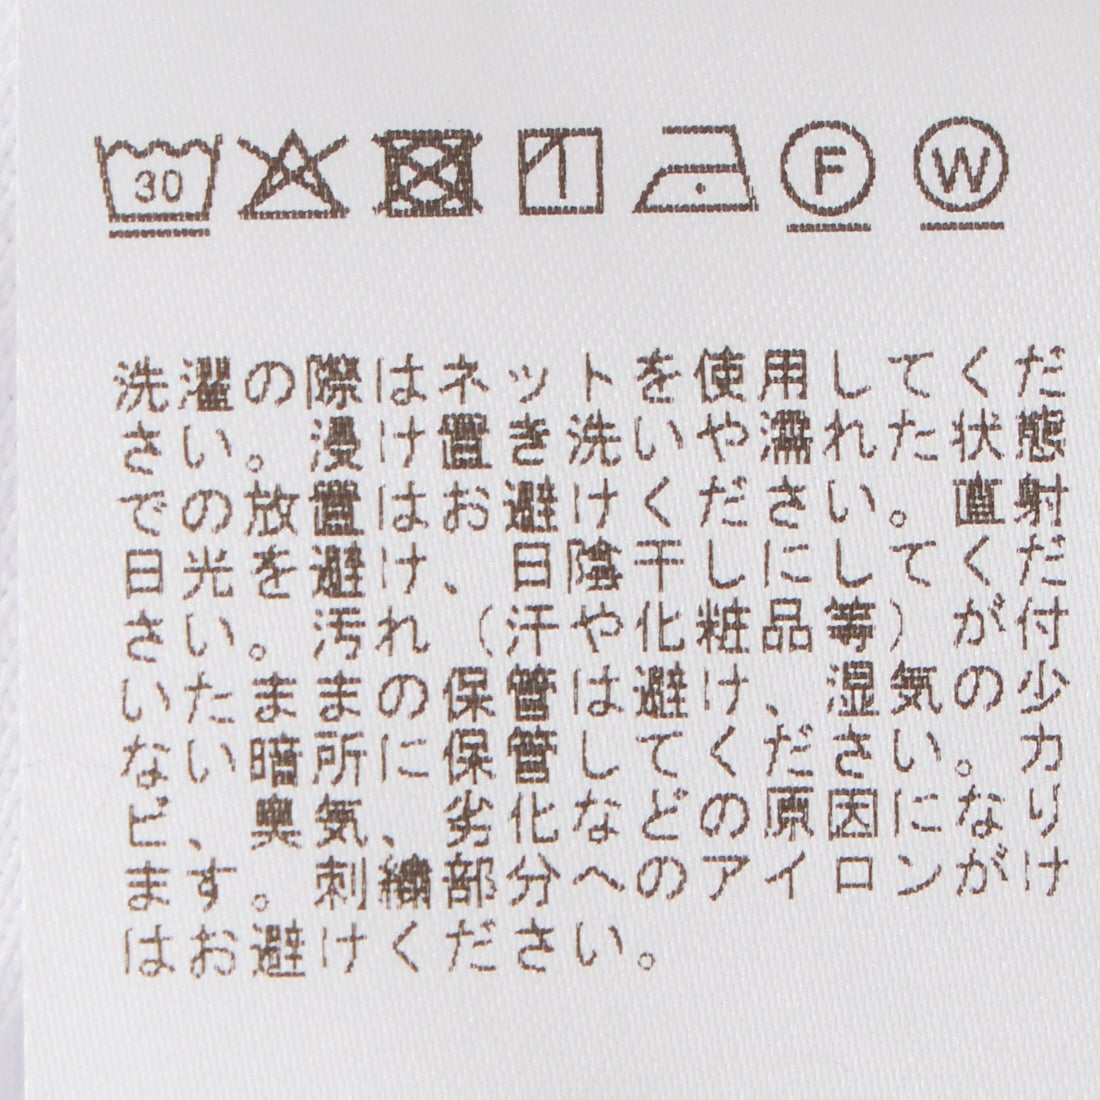 30 F W
洗濯の際はネットを使用してくだ
さい。浸け置き洗いや濡れた状態
での放置はお避けください。直射
日光を避け、日陰干しにしてくだ
さい。汚れ（汗や化粧品等）が付
いたままの保管は避け、湿気の少
ない暗所に保管してください。カ
ビ、臭気、劣化などの原因になり
ます。刺繍部分へのアイロンがけ
はお避けください。